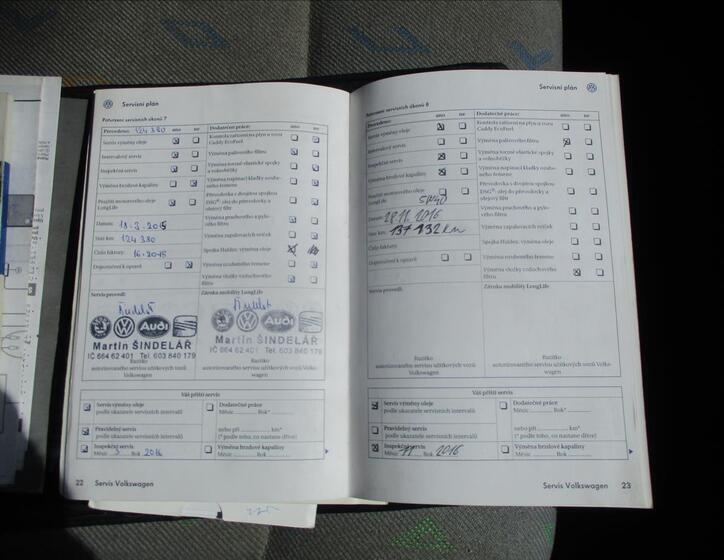 Servisní plán
Potvrzení servisních úkonů 7
Provedeno: 124 380 ano ne
Servis výměny oleje
Intervalový servis
Inspekční servis
Výměna brzdové kapaliny
Použití motorového oleje
LongLife
Datum: 18.3.2015
Stav km: 124 380
Číslo faktury: 16-2015
Doporučení k opravě
Servis provedl:
Martin ŠINDELÁŘ
IČ 664 62 401 Tel. 603 840 179
Razítko
autorizovaného servisu užitkových vozů
Volkswagen
Dodatečné práce: ano ne
Kontrola zařízení na plyn u vozu
Caddy EcoFuel
Výměna palivového filtru
Výměna torzně elastické spojky
a vzduchotěsny
Výměna napínací kladky ozubeného řemene
Převodovka s dvojitou spojkou
DSG®: olej do převodovky a
olejový filtr
Výměna prachového a pylového filtru
Výměna zapalovacích svíček
Spojka Haldex: výměna oleje
Výměna ozubeného řemene
Výměna vložky vzduchového
filtru
Záruka mobility LongLife
Martin ŠINDELÁŘ
IČ 664 62 401 Tel. 603 840 179
Razítko
autorizovaného servisu užitkových vozů Volkswagen
Váš příští servis
Servis výměny oleje
podle ukazatele servisních intervalů
Pravidelný servis
podle ukazatele servisních intervalů
Inspekční servis
Měsíc 3 Rok 2016
Dodatečné práce
Měsíc Rok*
nebo při km*
(* podle toho, co nastane dříve)
Výměna brzdové kapaliny
Měsíc Rok
22 Servis Volkswagen
Servisní plán
Potvrzení servisních úkonů 8
Provedeno: ano ne
Servis výměny oleje
Intervalový servis
Inspekční servis
Výměna brzdové kapaliny
Použití motorového oleje
LongLife 5W40
Datum: 28.11.2016
Stav km: 137 132 km
Číslo faktury:
Doporučení k opravě
Servis provedl:
Razítko
autorizovaného servisu užitkových vozů
Volkswagen
Dodatečné práce: ano ne
Kontrola zařízení na plyn u vozu
Caddy EcoFuel
Výměna palivového filtru
Výměna torzně elastické spojky
Výměna napínací kladky ozubeného řemene
Převodovka s dvojitou spojkou
DSG®: olej do převodovky a
olejový filtr
Výměna prachového a pylového filtru
Výměna zapalovacích svíček
Spojka Haldex: výměna oleje
Výměna ozubeného řemene
Výměna vložky vzduchového
filtru
Záruka mobility LongLife
Razítko
autorizovaného servisu užitkových vozů Volkswagen
Váš příští servis
Servis výměny oleje
podle ukazatele servisních intervalů
Pravidelný servis
podle ukazatele servisních intervalů
Inspekční servis
Měsíc 11 Rok 2016
Dodatečné práce
Měsíc Rok*
nebo při km*
(* podle toho, co nastane dříve)
Výměna brzdové kapaliny
Měsíc Rok
Servis Volkswagen 23